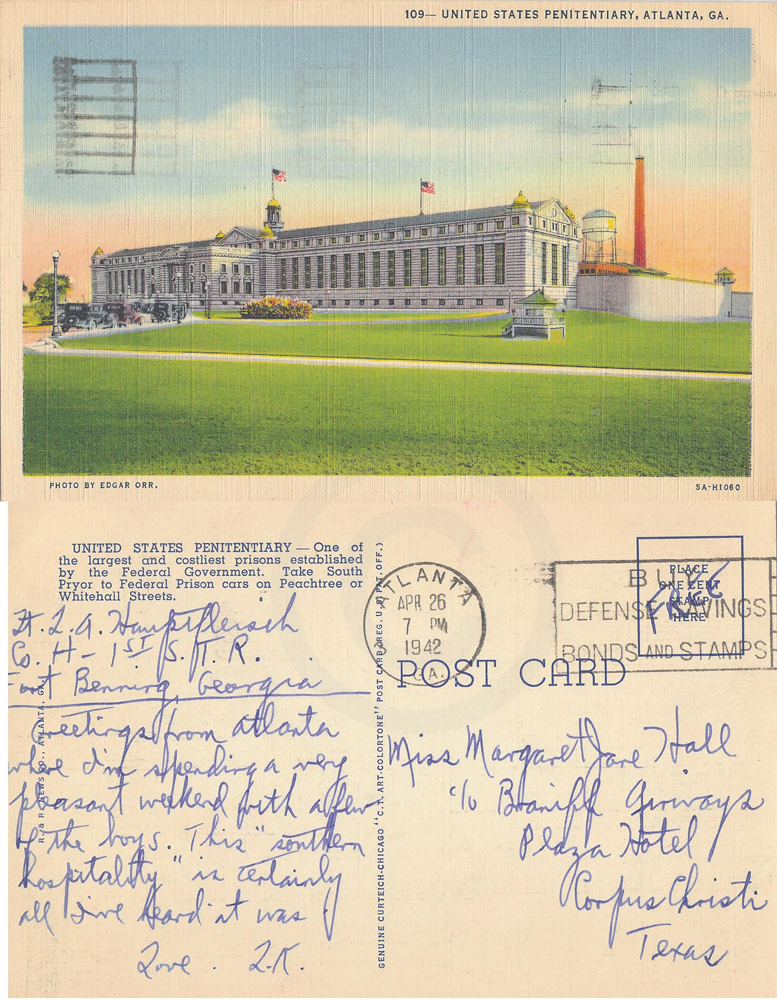 109— UNITED STATES PENITENTIARY, ATLANTA, GA.
PHOTO BY EDGAR ORR.
5A-H1060
UNITED STATES PENITENTIARY — One of
the largest and costliest prisons established
by the Federal Government. Take South
Pryor to Federal Prison cars on Peachtree or
Whitehall Streets.
Lt. L. A. Hauptfleisch
Co. H – 1ST S.T.R.
Fort Benning, Georgia
Greetings from Atlanta
where I'm spending a very
pleasant weekend with a few
of the boys. This "southern
hospitality" is certainly
all I've heard it was!
Love. L.K.
R. & R. NEWS CO., ATLANTA, GA.
GENUINE CURTEICH-CHICAGO "C.T. ART-COLORTONE" POST CARD (REG. U.S. PAT. OFF.)
ATLANTA
APR 26
7 PM
1942
GA.
BUY
DEFENSE SAVINGS
BONDS AND STAMPS
PLACE
ONE CENT
STAMP
HERE
FREE
POST CARD
Miss Margaret Jane Hall
c/o Braniff Airways
Plaza Hotel
Corpus Christi
Texas